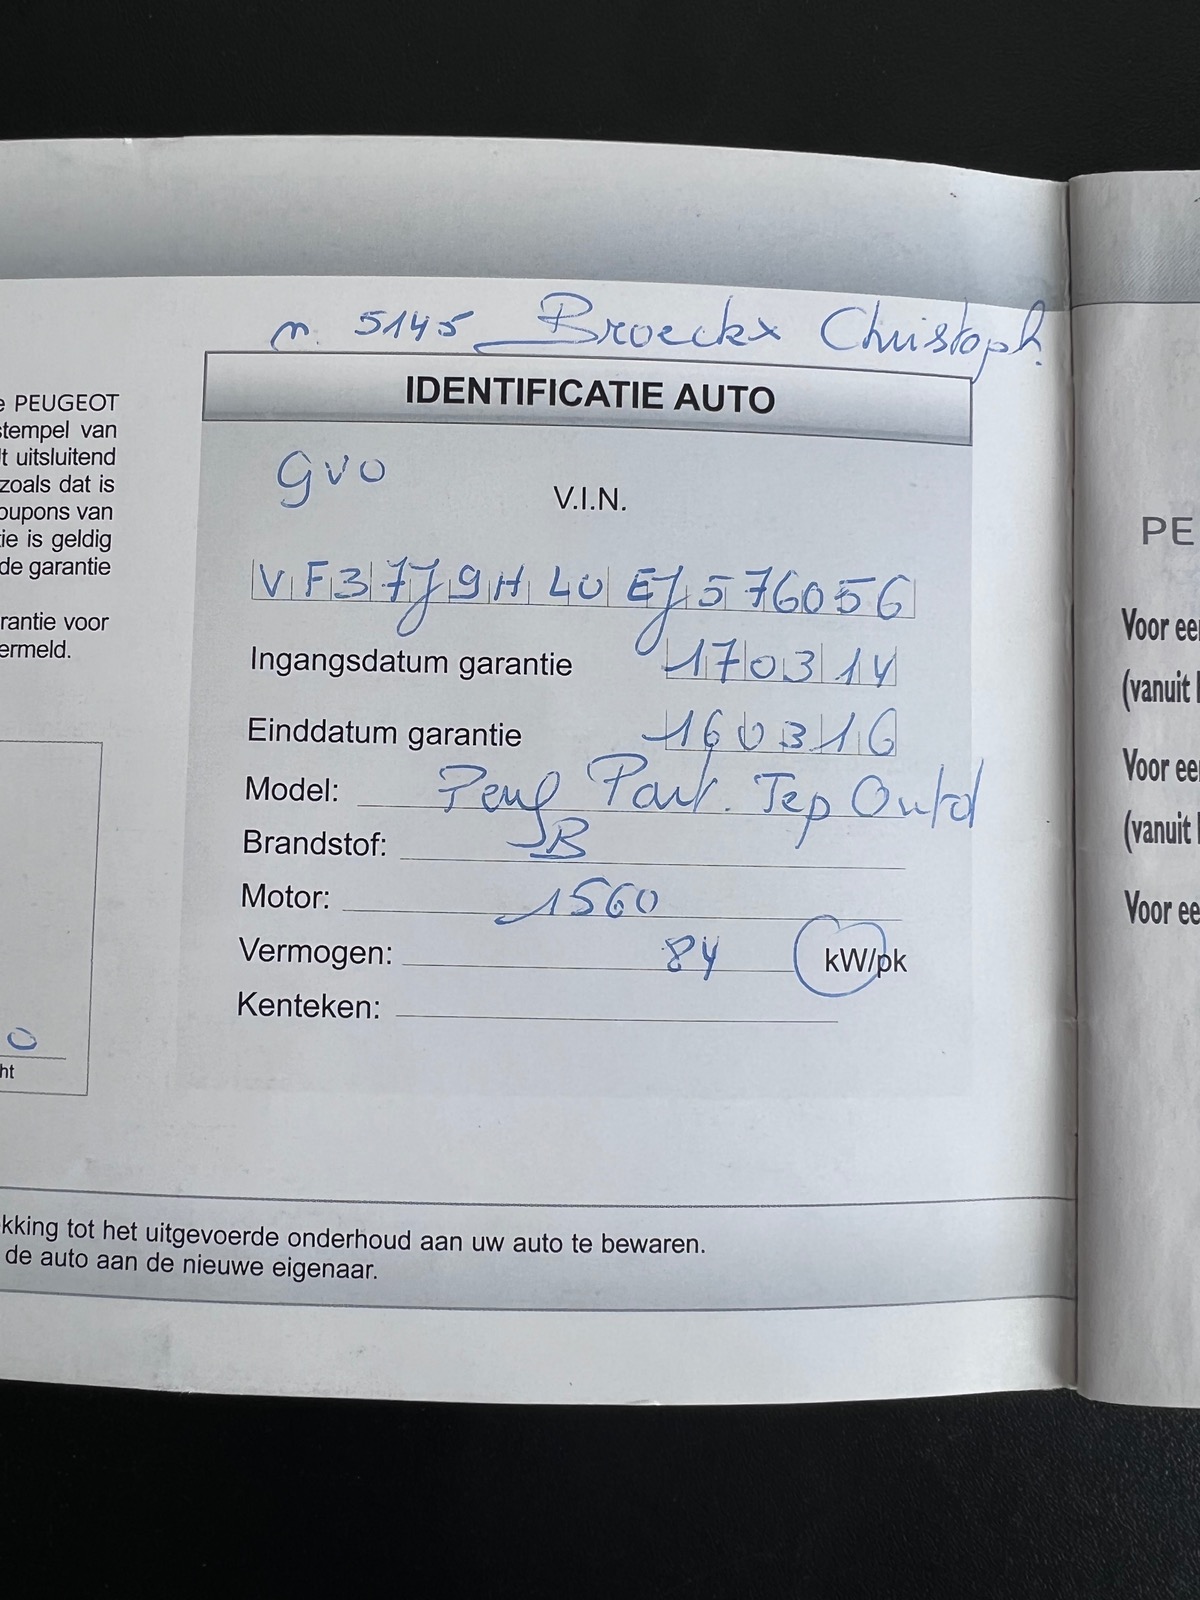 n. 5145 Broeckx Christoph.
IDENTIFICATIE AUTO
gvo
V.I.N.
VF37J9HL0EJ576056
Ingangsdatum garantie 170314
Einddatum garantie 160316
Model: Peug Part. Tep Outd
Brandstof: B
Motor: 1560
Vermogen: 84 kW/pk
Kenteken:
e PEUGEOT
stempel van
t uitsluitend
zoals dat is
oupons van
tie is geldig
de garantie
rantie voor
ermeld.
o
ht
kking tot het uitgevoerde onderhoud aan uw auto te bewaren.
de auto aan de nieuwe eigenaar.
PE
Voor ee
(vanuit
Voor ee
(vanuit
Voor ee